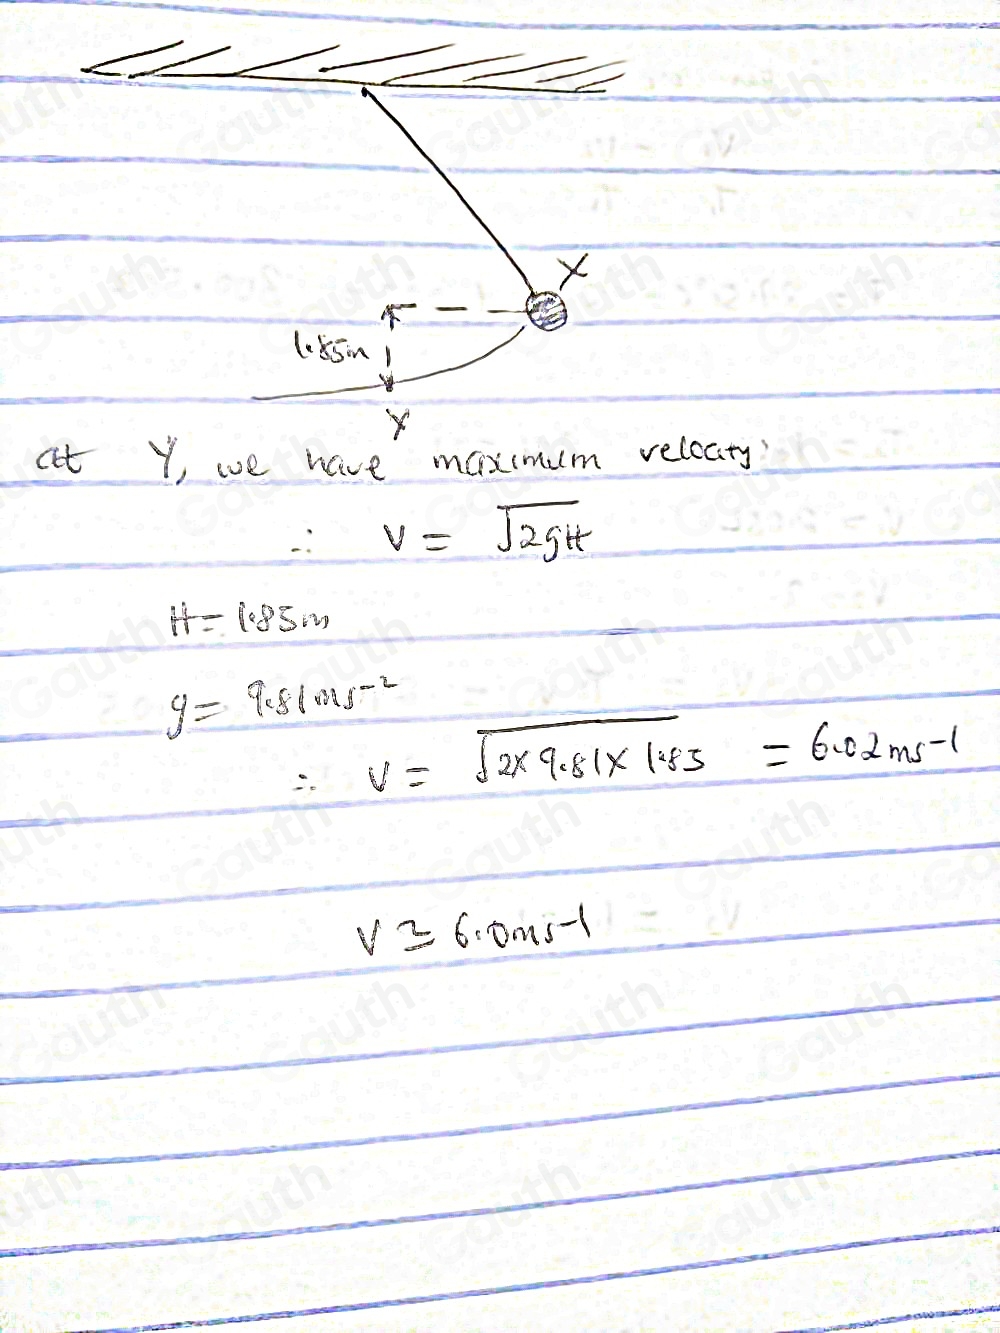 X
1.85m
Y
at Y, we have maximum velocity:
∴ V = √2gH
H = 1.85m
g = 9.81ms⁻²
∴ V = √2x 9.81x 1.85 = 6.02ms⁻¹
V ≃ 6.0ms⁻¹